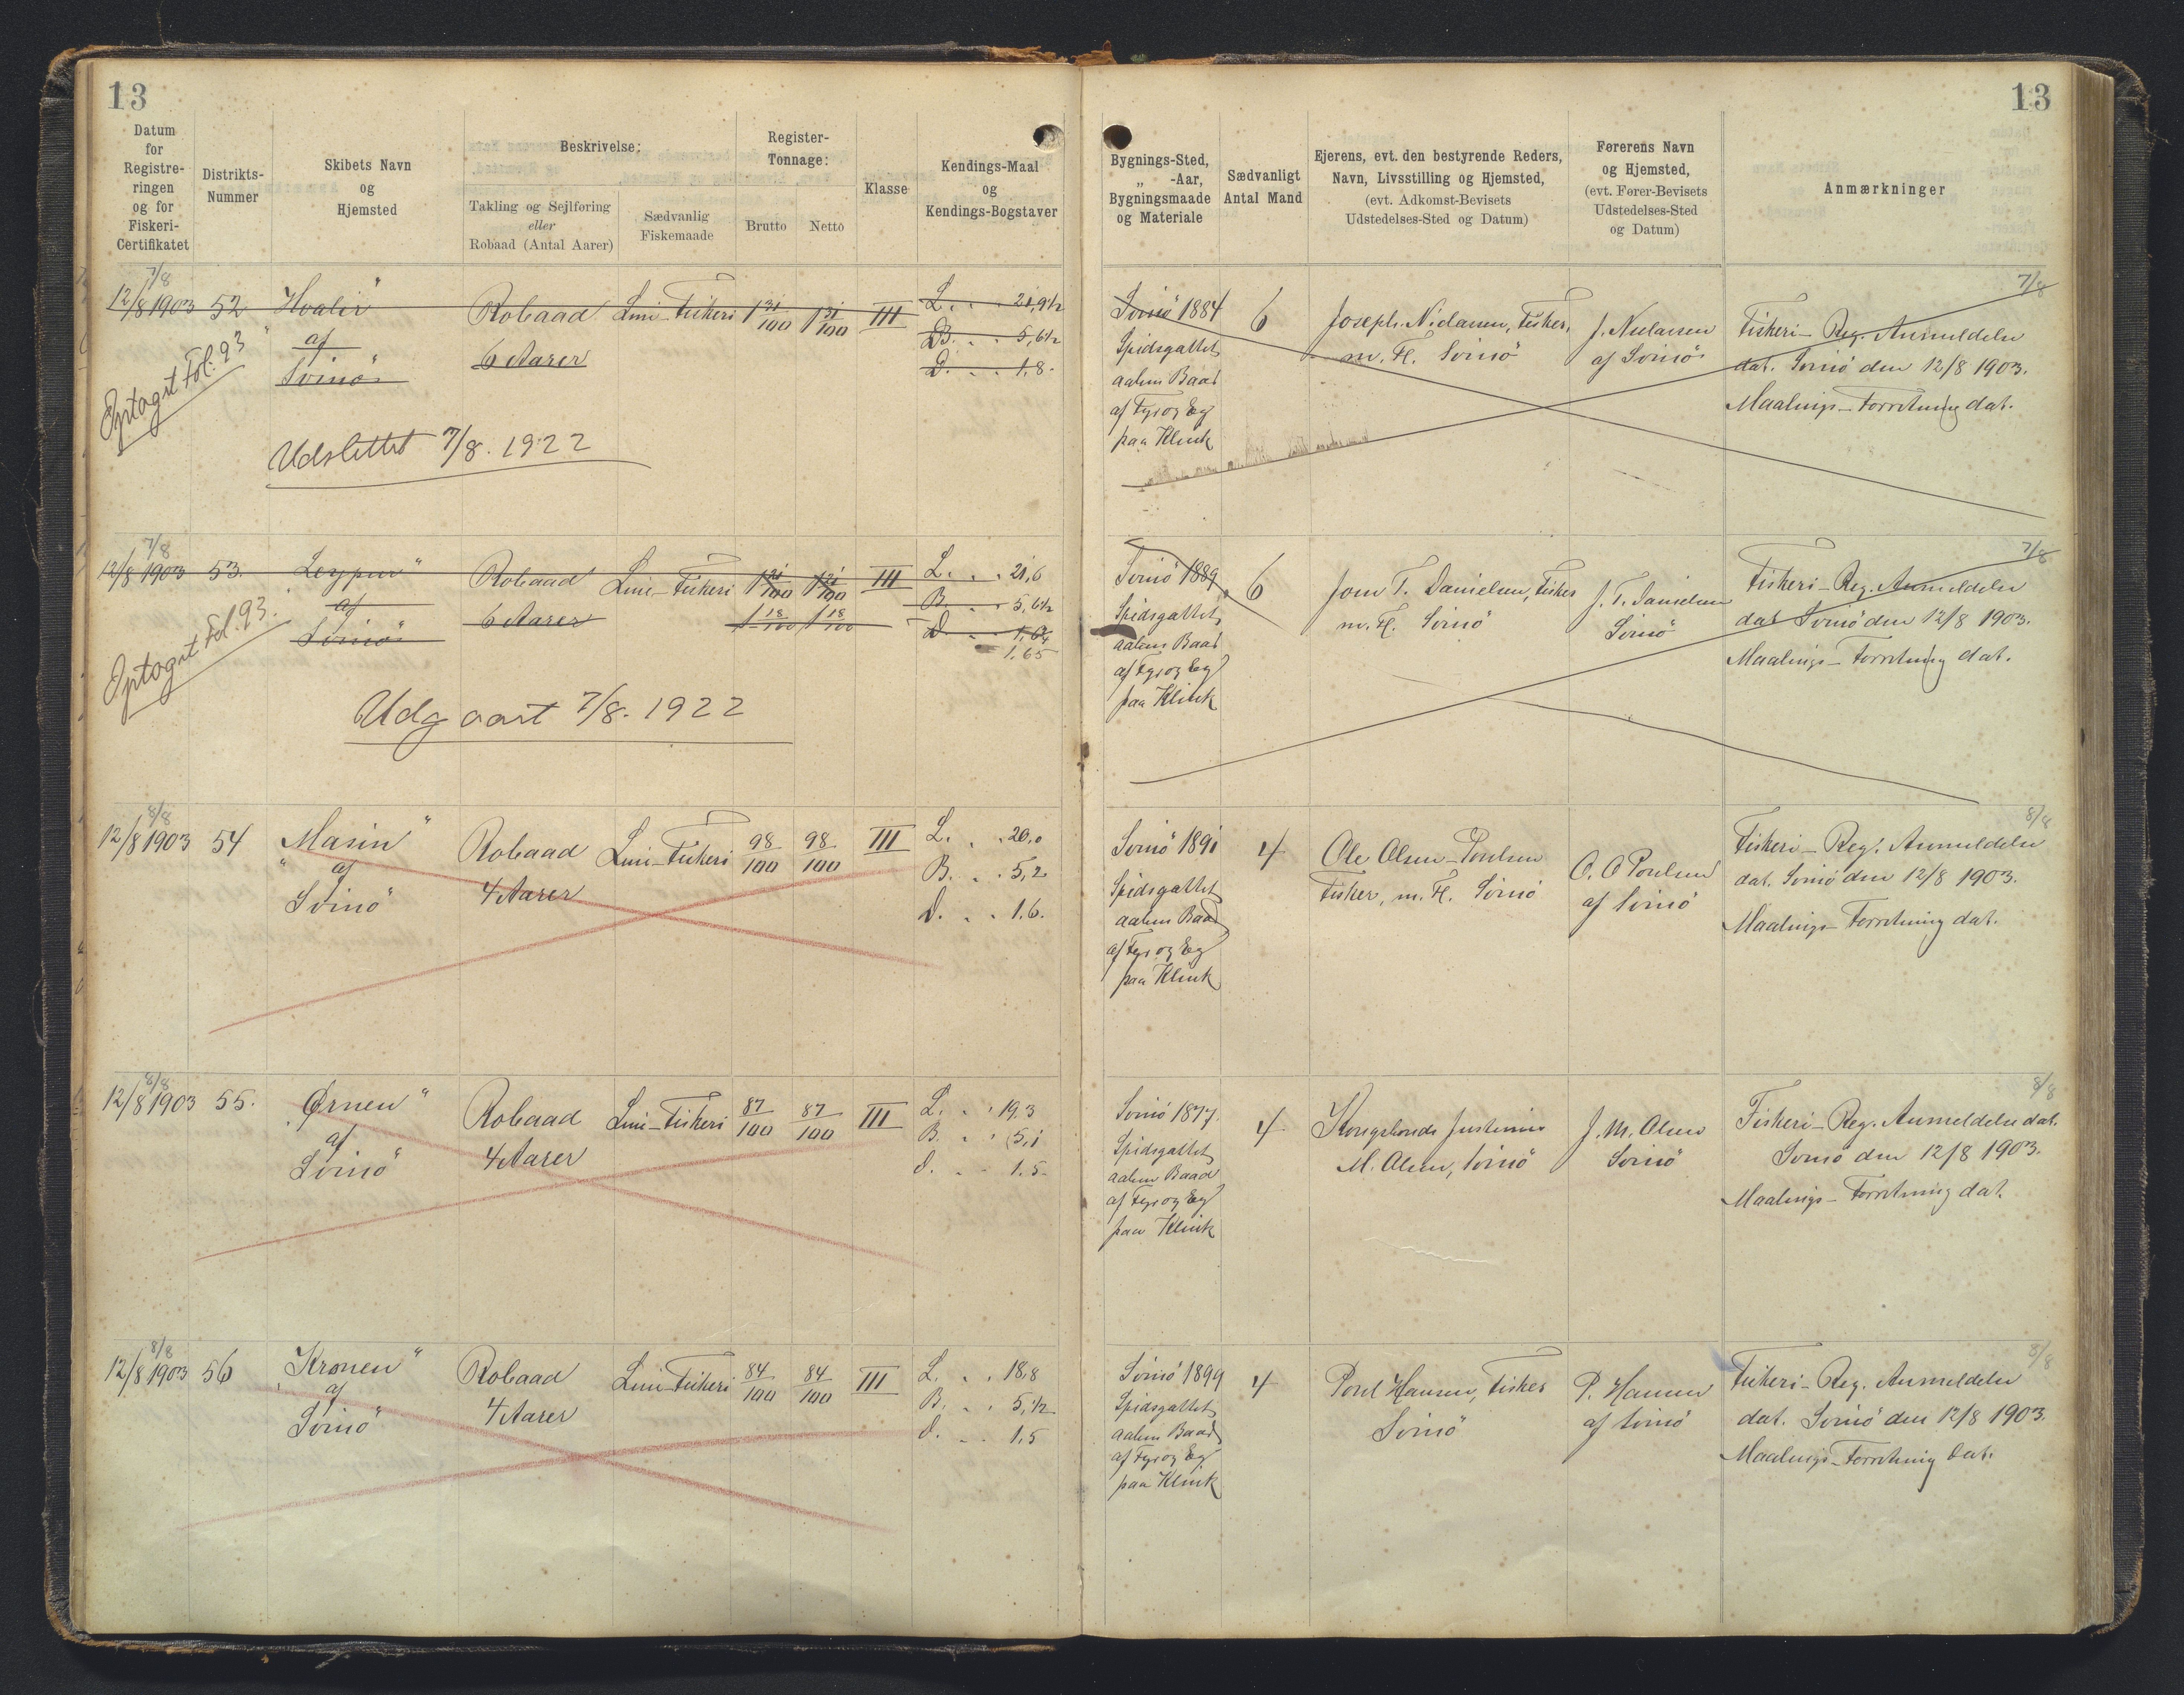 13
13
Datum
for
Registre-
ringen
og for
Fiskeri-
Certifikatet
Distrikts-
Nummer
Skibets Navn
og
Hjemsted
Beskrivelse:
Takling og Sejlføring
eller
Robaad (Antal Aarer)
Sædvanlig
Fiskemaade
Register-
Tonnage:
Brutto
Netto
Klasse
Kendings-Maal
og
Kendings-Bogstaver
Bygnings-Sted,
„ -Aar,
Bygningsmaade
og Materiale
Sædvanligt
Antal Mand
Ejerens, evt. den bestyrende Reders,
Navn, Livsstilling og Hjemsted,
(evt. Adkomst-Bevisets
Udstedelses-Sted og Datum)
Førerens Navn
og Hjemsted,
(evt. Fører-Bevisets
Udstedelses-Sted
og Datum)
Anmærkninger
7/8
12/8 1903 52
af
Svinö
Robaad
6 Aarer
Line-Fiskeri
1 31/100 1 31/100
III
L. . . 21,9½
B. . . 5,6½
D. . . 1,8
Optaget Fol. 93
Udslettet 7/8. 1922
Svinö 1884
Spidsgattet
aaben Baad
af Fyr og Eg
paa Klink
6
Joseph Nielassen, Fisker,
m. Fl. Svinö
J. Nielassen
af Svinö
7/8
Fiskeri-Reg. Anmeldelse
dat. Svinö den 12/8 1903.
Maalings-Forretning dat.
7/8
12/8 1903 53.
af
Svinö
Robaad
6 Aarer
Line-Fiskeri
1 21/100 1 21/100
1 18/100 1 18/100
III
L. . . 21,6
B. . . 5,6½
D. . .
1,65
Optaget Fol. 93.
Udgaaet 7/8. 1922
Svinö 1889
Spidsgattet
aaben Baad
af Fyr og Eg
paa Klink
6
T. Danielsen, Fisker
m. Fl. Svinö
J. T. Danielsen
Svinö
7/8
Fiskeri-Reg. Anmeldelse
dat. Svinö den 12/8 1903.
Maalings-Forretning dat.
8/8
12/8 1903 54
„Masin“
af
Svinö
Robaad
4 Aarer
Line-Fiskeri
98/100 98/100
III
L. . . 20,0
B. . . 5,2
D. . . 1.6.
Svinö 1891
Spidsgattet
aaben Baad
af Fyr og Eg
paa Klink
4
Ole Olsen-Poulsen
Fisker, m. Fl. Svinö
O. O Poulsen
af Svinö
8/8
Fiskeri-Reg. Anmeldelse
dat. Svinö den 12/8 1903.
Maalings-Forretning dat.
8/8
12/8 1903 55.
„Ørnen“
af
Svinö
Robaad
4 Aarer
Line-Fiskeri
87/100 87/100
III
L. . . 19.3
B. . . 5,1
D. . . 1.5
Svinö 1877.
Spidsgattet
aaben Baad
af Fyr og Eg
paa Klink
4
Kongsbonde Justinus
M. Olsen, Svinö
J. M. Olsen
Svinö
8/8
Fiskeri-Reg. Anmeldelse dat.
Svinö den 12/8 1903.
Maalings-Forretning dat.
8/8
12/8 1903 56
„Kronen“
af
Svinö
Robaad
4 Aarer
Line-Fiskeri
84/100 84/100
III
L. . . 18,8
B. . . 5,½
D. . . 1,5
Svinö 1899
Spidsgattet
aaben Baad
af Fyr og Eg
paa Klink
4
Poul Hansen, Fisker
Svinö
P. Hansen
af Svinö
8/8
Fiskeri-Reg. Anmeldelse
dat. Svinö den 12/8 1903.
Maalings-Forretning dat.